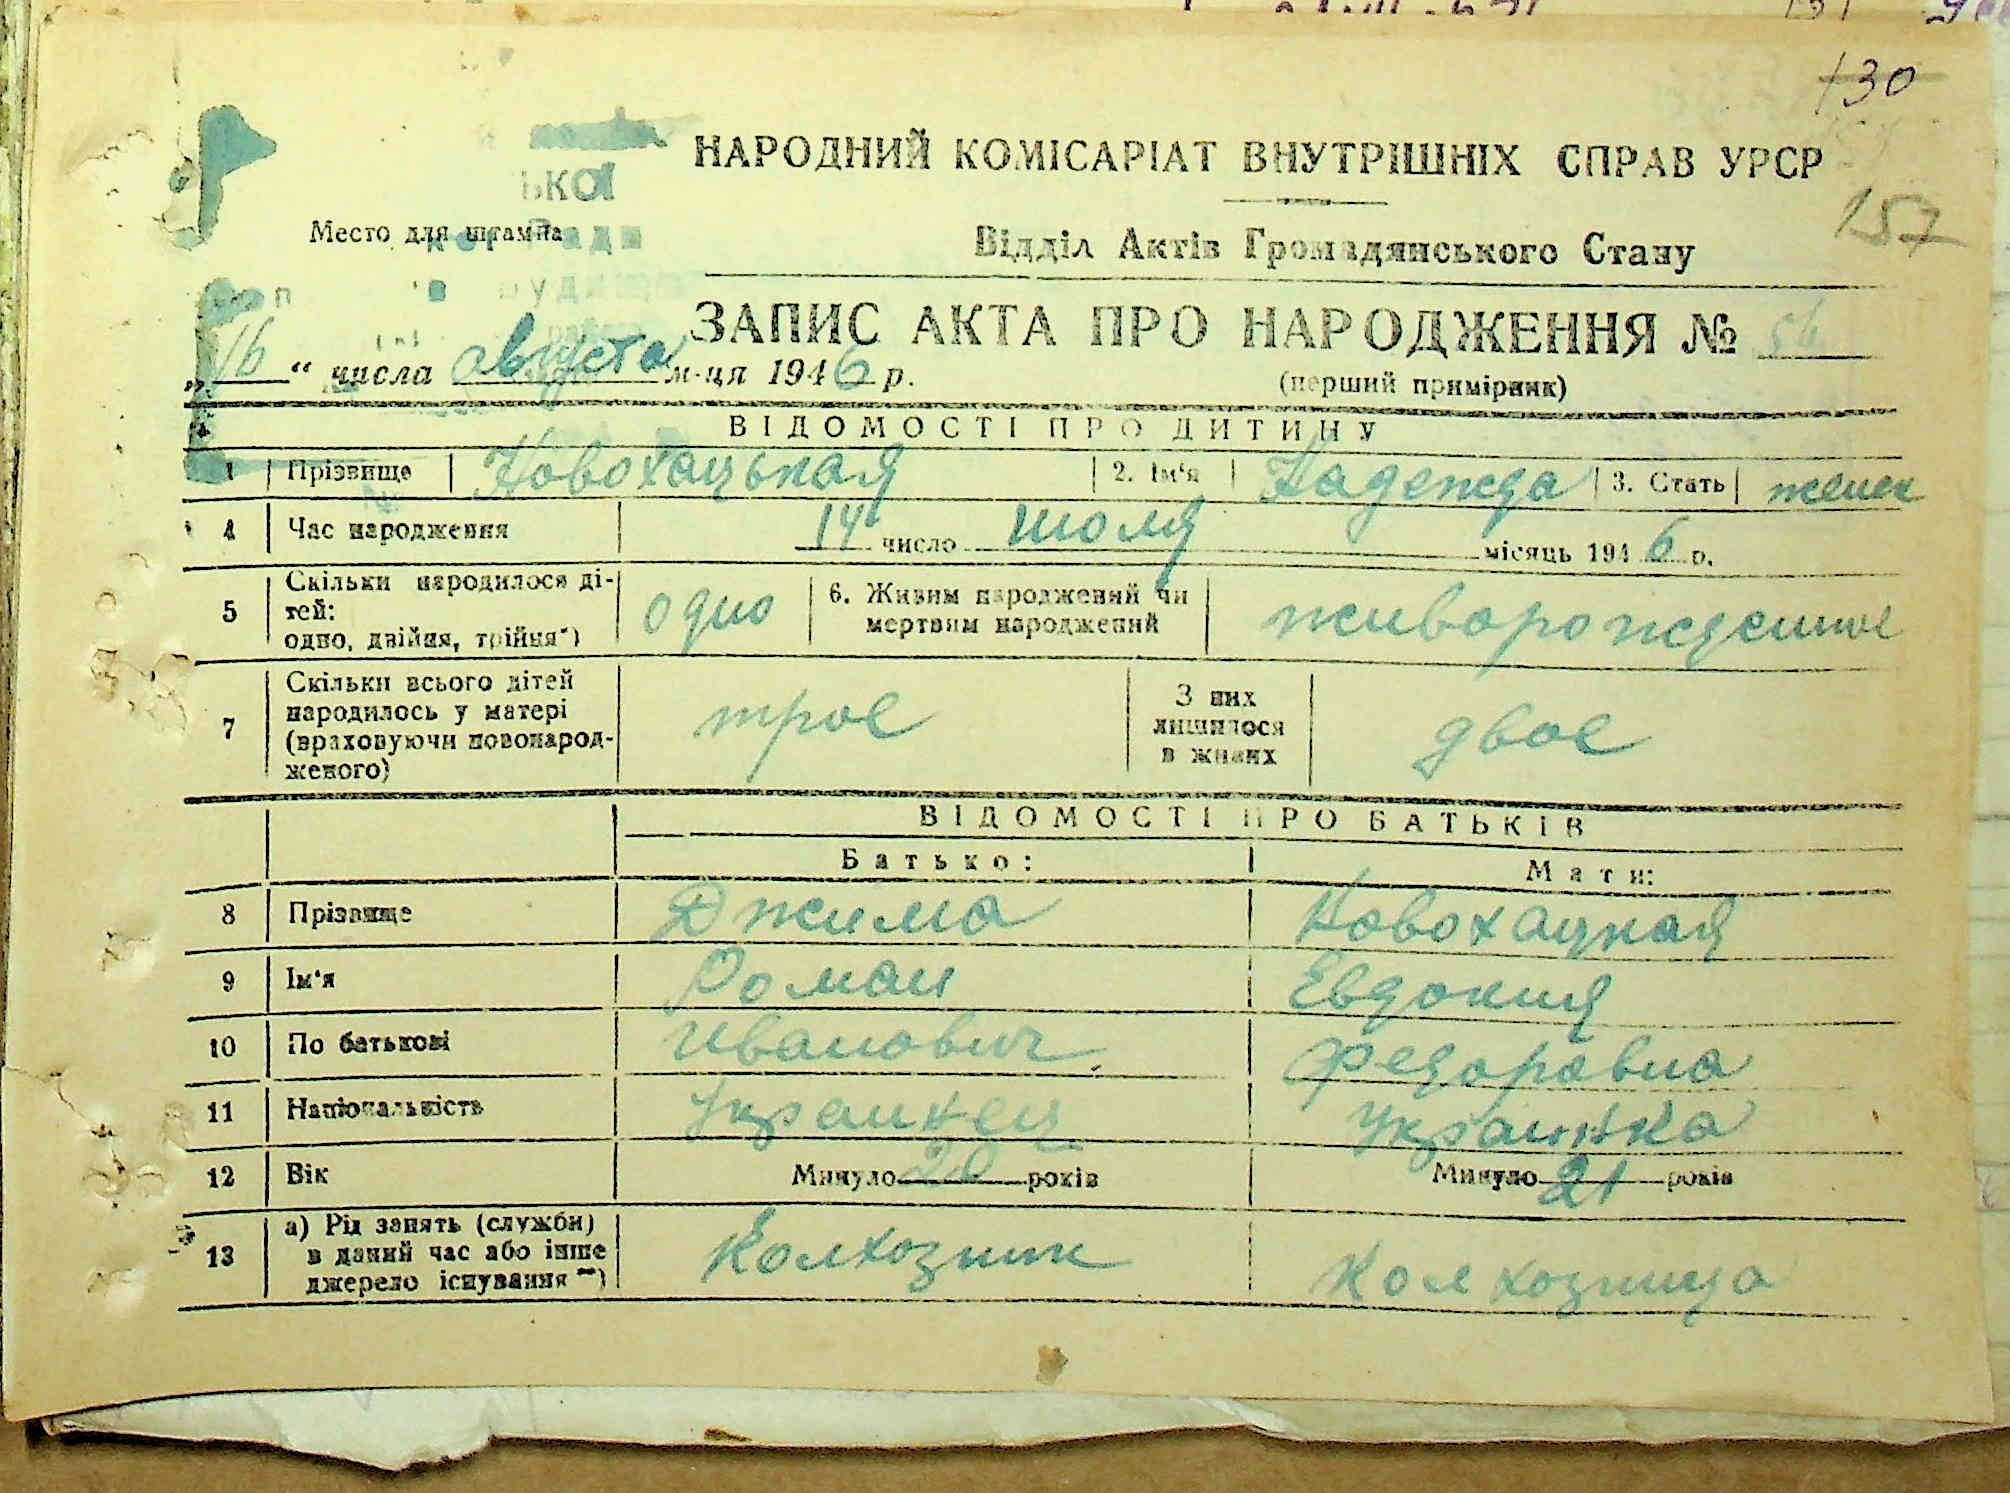 130
НАРОДНИЙ КОМІСАРІАТ ВНУТРІШНІХ СПРАВ УРСР
ЬКОЇ
157
Место для штампа
Відділ Актів Громадянського Стану
ЗАПИС АКТА ПРО НАРОДЖЕННЯ № 56
„16“ числа августа м-ця 1946 р.
(перший примірник)
ВІДОМОСТІ ПРО ДИТИНУ
1 Прізвище Новохацькая 2. Ім'я Надежда 3. Стать женск
4 Час народження 14 число июля місяць 1946 р.
5 Скільки народилося ді-
тей:
одно, двійня, трійня*) одно 6. Живим народжений чи
мертвим народжений живорожденное
7 Скільки всього дітей
народилось у матері
(враховуючи новонарод-
женого) трое З них
лишилося
в живих двое
ВІДОМОСТІ ПРО БАТЬКІВ
Батько: Мати:
8 Прізвище Джима Новохацкая
9 Ім'я Роман Евдокия
10 По батькові Иванович Федоровна
11 Національність Украинец Украинка
12 Вік Минуло років Минуло 21 років
13 а) Рід занять (служби)
в даний час або інше
джерело існування**) Колхозник Колхозница